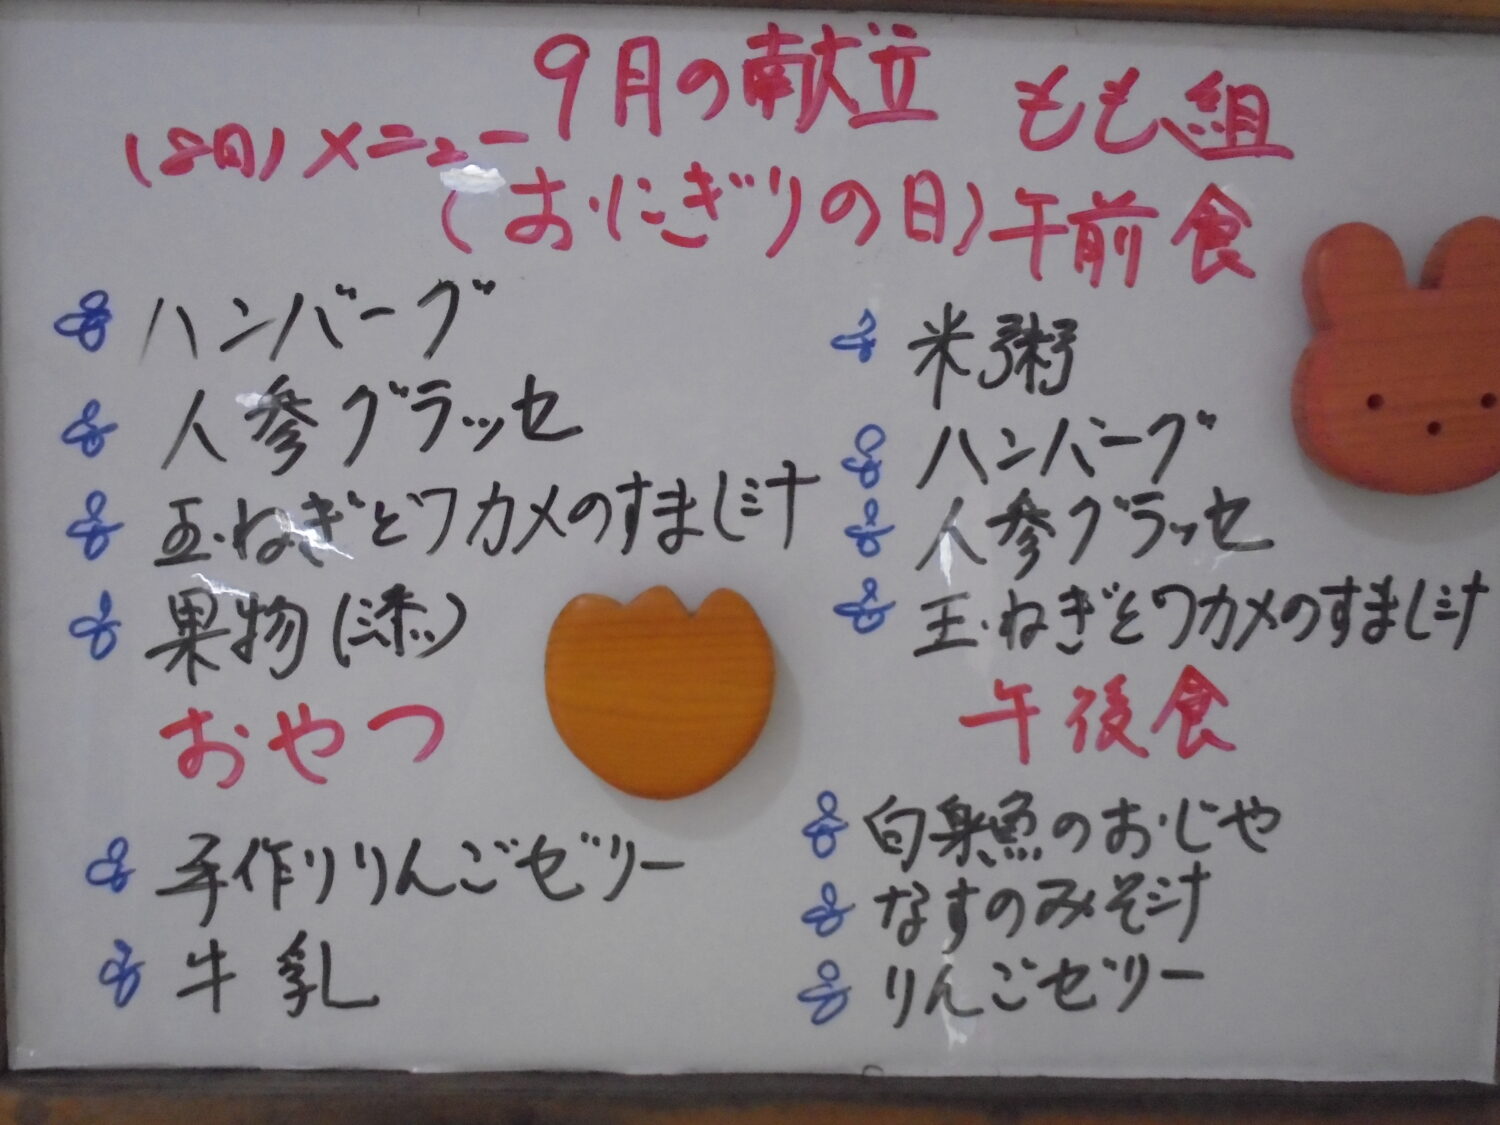 9月の献立
(8日)メニュー
(おにぎりの日)
ハンバーグ
人参グラッセ
玉ねぎとワカメのすまし汁
果物(
おやつ
手作りりんごゼリー
牛乳
もも組
午前食
米粥
ハンバーグ
人参グラッセ
玉ねぎとワカメのすまし汁
午後食
白身魚のおじや
なすのみそ汁
りんごゼリー